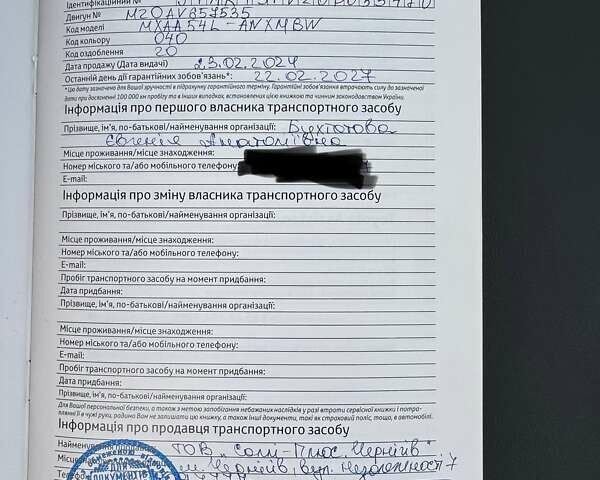 Ідентифікаційний №
Двигун № M20AV857535
Код моделі MXAA54L-ANXMBW
Код кольору 040
Код оздоблення 20
Дата продажу (Дата видачі) 23.02.2024
Останній день дії гарантійних зобов'язань*: 22.02.2027
*Цю дату зазначено для Вашої зручності в підрахунку гарантійного терміну. Гарантійні зобов'язання втрачають силу до зазначеної
дати при досягненні 100 000 км пробігу та в інших випадках, встановлених цією книжкою та чинним законодавством України.
Інформація про першого власника транспортного засобу
Прізвище, ім'я, по-батькові/найменування організації:
Євгенія Анатоліївна
Місце проживання/місце знаходження:
Номер міського та/або мобільного телефону:
E-mail:
Інформація про зміну власника транспортного засобу
Прізвище, ім'я, по-батькові/найменування організації:
Місце проживання/місце знаходження:
Номер міського та/або мобільного телефону:
E-mail:
Пробіг транспортного засобу на момент придбання:
Дата придбання:
Прізвище, ім'я, по-батькові/найменування організації:
Місце проживання/місце знаходження:
Номер міського та/або мобільного телефону:
E-mail:
Пробіг транспортного засобу на момент придбання:
Дата придбання:
Прізвище, ім'я, по-батькові/найменування організації:
Для Вашої персональної безпеки, а також з метою запобігання небажаних наслідків у разі втрати сервісної книжки і потра-
плянні її в чужі руки, радимо Вам не залишати цю книжку, а також інші документи, такі як страховий поліс, тощо, в автомобілі.
Інформація про продавця транспортного засобу
Найменування ТОВ "Соли-Плюс Чернігів"
Місце м. Чернігів, вул. Незалежності 7
Телефон
ДЛЯ
ДОКУМЕНТІВ